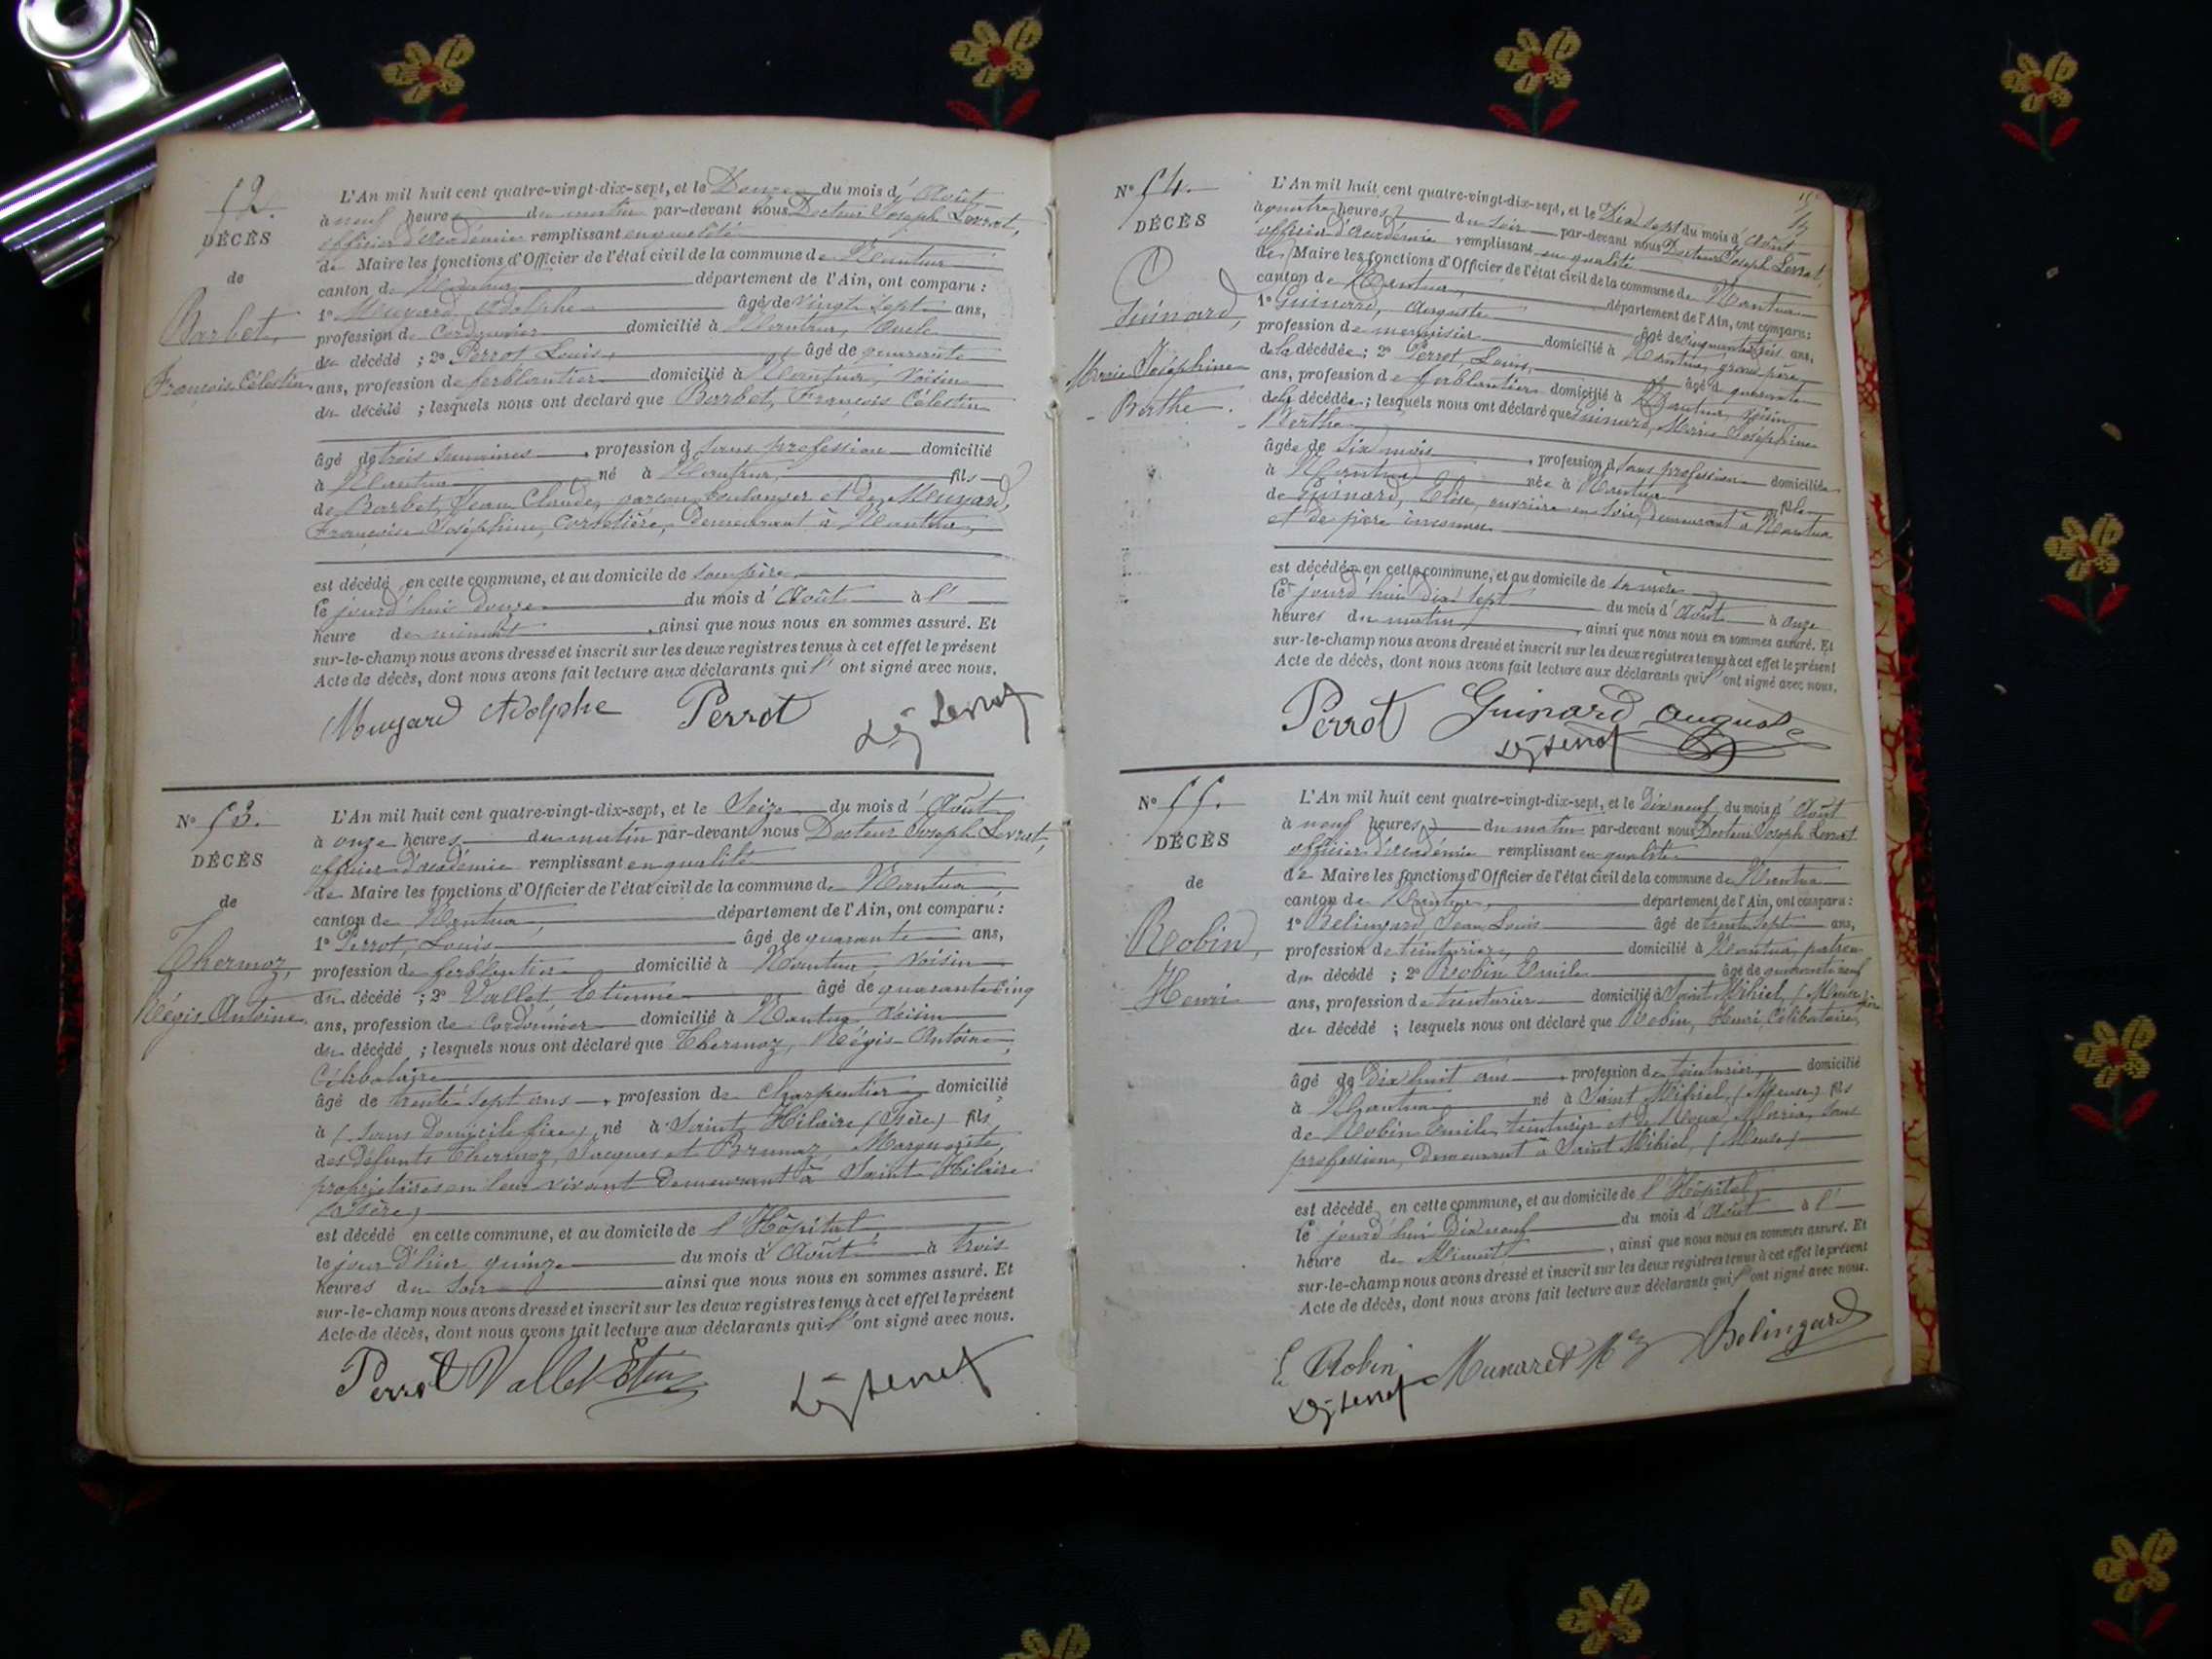 52.
DÉCÈS
de
Barbet,
François Célestin
L'An mil huit cent quatre-vingt-dix-sept, et le Douze du mois d'Août
à neuf heures du matin par-devant nous Docteur Joseph Levrat,
officier d'académie remplissant en qualité
de Maire les fonctions d'Officier de l'état civil de la commune de Nantua
canton de Nantua département de l'Ain, ont comparu :
1° Adolphe âgé de vingt sept ans,
profession de Cordonnier domicilié à Nantua, Oncle
du décédé ; 2° Perrot Louis, âgé de quarante
ans, profession de ferblantier domicilié à Nantua, Voisin
du décédé ; lesquels nous ont déclaré que Barbet, François Célestin
âgé de trois semaines, profession d sans profession domicilié
à Nantua né à Nantua, fils
de Barbet, Jean Claude, garçon boulanger et de
Françoise Joséphine, Corsetière, Demeurant à Nantua,
est décédé en cette commune, et au domicile de son père,
le jourd'hui douze du mois d'Août à l'
heure de minuit, ainsi que nous nous en sommes assuré. Et
sur-le-champ nous avons dressé et inscrit sur les deux registres tenus à cet effet le présent
Acte de décès, dont nous avons fait lecture aux déclarants qui l'ont signé avec nous.
Adolphe Perrot Levrat
N° 53.
DÉCÈS
de
Thermoz,
Régis Antoine
L'An mil huit cent quatre-vingt-dix-sept, et le Seize du mois d'Août
à onze heures du matin par-devant nous Docteur Joseph Levrat,
officier d'académie remplissant en qualité
de Maire les fonctions d'Officier de l'état civil de la commune de Nantua
canton de Nantua, département de l'Ain, ont comparu :
1° Perrot, Louis âgé de quarante ans,
profession de ferblantier domicilié à Nantua, Voisin
du décédé ; 2° Vallet, Etienne âgé de quarante cinq
ans, profession de Cordonnier domicilié à Nantua Voisin
du décédé ; lesquels nous ont déclaré que Thermoz, Régis-Antoine,
Célibataire
âgé de trente sept ans, profession de Charpentier domicilié
à (sans Domicile fixe), né à Saint Hilaire (Isère) fils
des défunts Thermoz, Jacques et Brunaz, Marguerite,
propriétaires en leur vivant Demeurant à Saint Hilaire
(Isère)
est décédé en cette commune, et au domicile de l'Hôpital
le jour d'hier quinze du mois d'Août à trois
heures du Soir ainsi que nous nous en sommes assuré. Et
sur-le-champ nous avons dressé et inscrit sur les deux registres tenus à cet effet le présent
Acte de décès, dont nous avons fait lecture aux déclarants qui l'ont signé avec nous.
Perrot Vallet Levrat
N° 54.
DÉCÈS
Guinard,
Marie Joséphine
- Berthe.
L'An mil huit cent quatre-vingt-dix-sept, et le Dix sept du mois d'Août
à quatre heures du soir par-devant nous Docteur Joseph Levrat,
officier d'académie remplissant en qualité
de Maire les fonctions d'Officier de l'état civil de la commune de Nantua
canton de Nantua, département de l'Ain, ont comparu :
1° Guinard, Auguste âgé de cinquante trois ans,
profession de menuisier domicilié à Nantua, grand père
de la décédée ; 2° Perrot, Louis, âgé de quarante
ans, profession de ferblantier domicilié à Nantua, Voisin
de la décédée ; lesquels nous ont déclaré que Guinard, Marie Joséphine
Berthe
âgée de six mois, profession d sans profession domiciliée
à Nantua née à Nantua fille
de Guinard, Elise, ouvrière en soie, demeurant à Nantua
et de père inconnu
est décédée en cette commune, et au domicile de sa mère
le jourd'hui dix sept du mois d'Août à onze
heures du matin, ainsi que nous nous en sommes assuré. Et
sur-le-champ nous avons dressé et inscrit sur les deux registres tenus à cet effet le présent
Acte de décès, dont nous avons fait lecture aux déclarants qui l'ont signé avec nous.
Perrot Guinard August
Levrat
N° 55.
DÉCÈS
de
Robin,
Henri
L'An mil huit cent quatre-vingt-dix-sept, et le Dix neuf du mois d'Août
à neuf heures du matin par-devant nous Docteur Joseph Levrat
officier d'académie remplissant en qualité
de Maire les fonctions d'Officier de l'état civil de la commune de Nantua
canton de Nantua, département de l'Ain, ont comparu :
1° Belingard, Jean Louis âgé de trente sept ans,
profession de teinturier, domicilié à Nantua, patron
du décédé ; 2° Robin Emile âgé de quarante neuf
ans, profession de teinturier domicilié à Saint Mihiel, (Meuse) père
du décédé ; lesquels nous ont déclaré que Robin, Henri, Célibataire,
âgé de Dix huit ans, profession de teinturier, domicilié
à Nantua né à Saint Mihiel, (Meuse) fils
de Robin Emile, teinturier et de Maria, sans
profession, demeurant à Saint Mihiel, (Meuse)
est décédé en cette commune, et au domicile de l'Hôpital
le jourd'hui Dix neuf du mois d'Août à l'
heure de Minuit, ainsi que nous nous en sommes assuré. Et
sur-le-champ nous avons dressé et inscrit sur les deux registres tenus à cet effet le présent
Acte de décès, dont nous avons fait lecture aux déclarants qui l'ont signé avec nous.
E Robin Munaret Belingard
Levrat